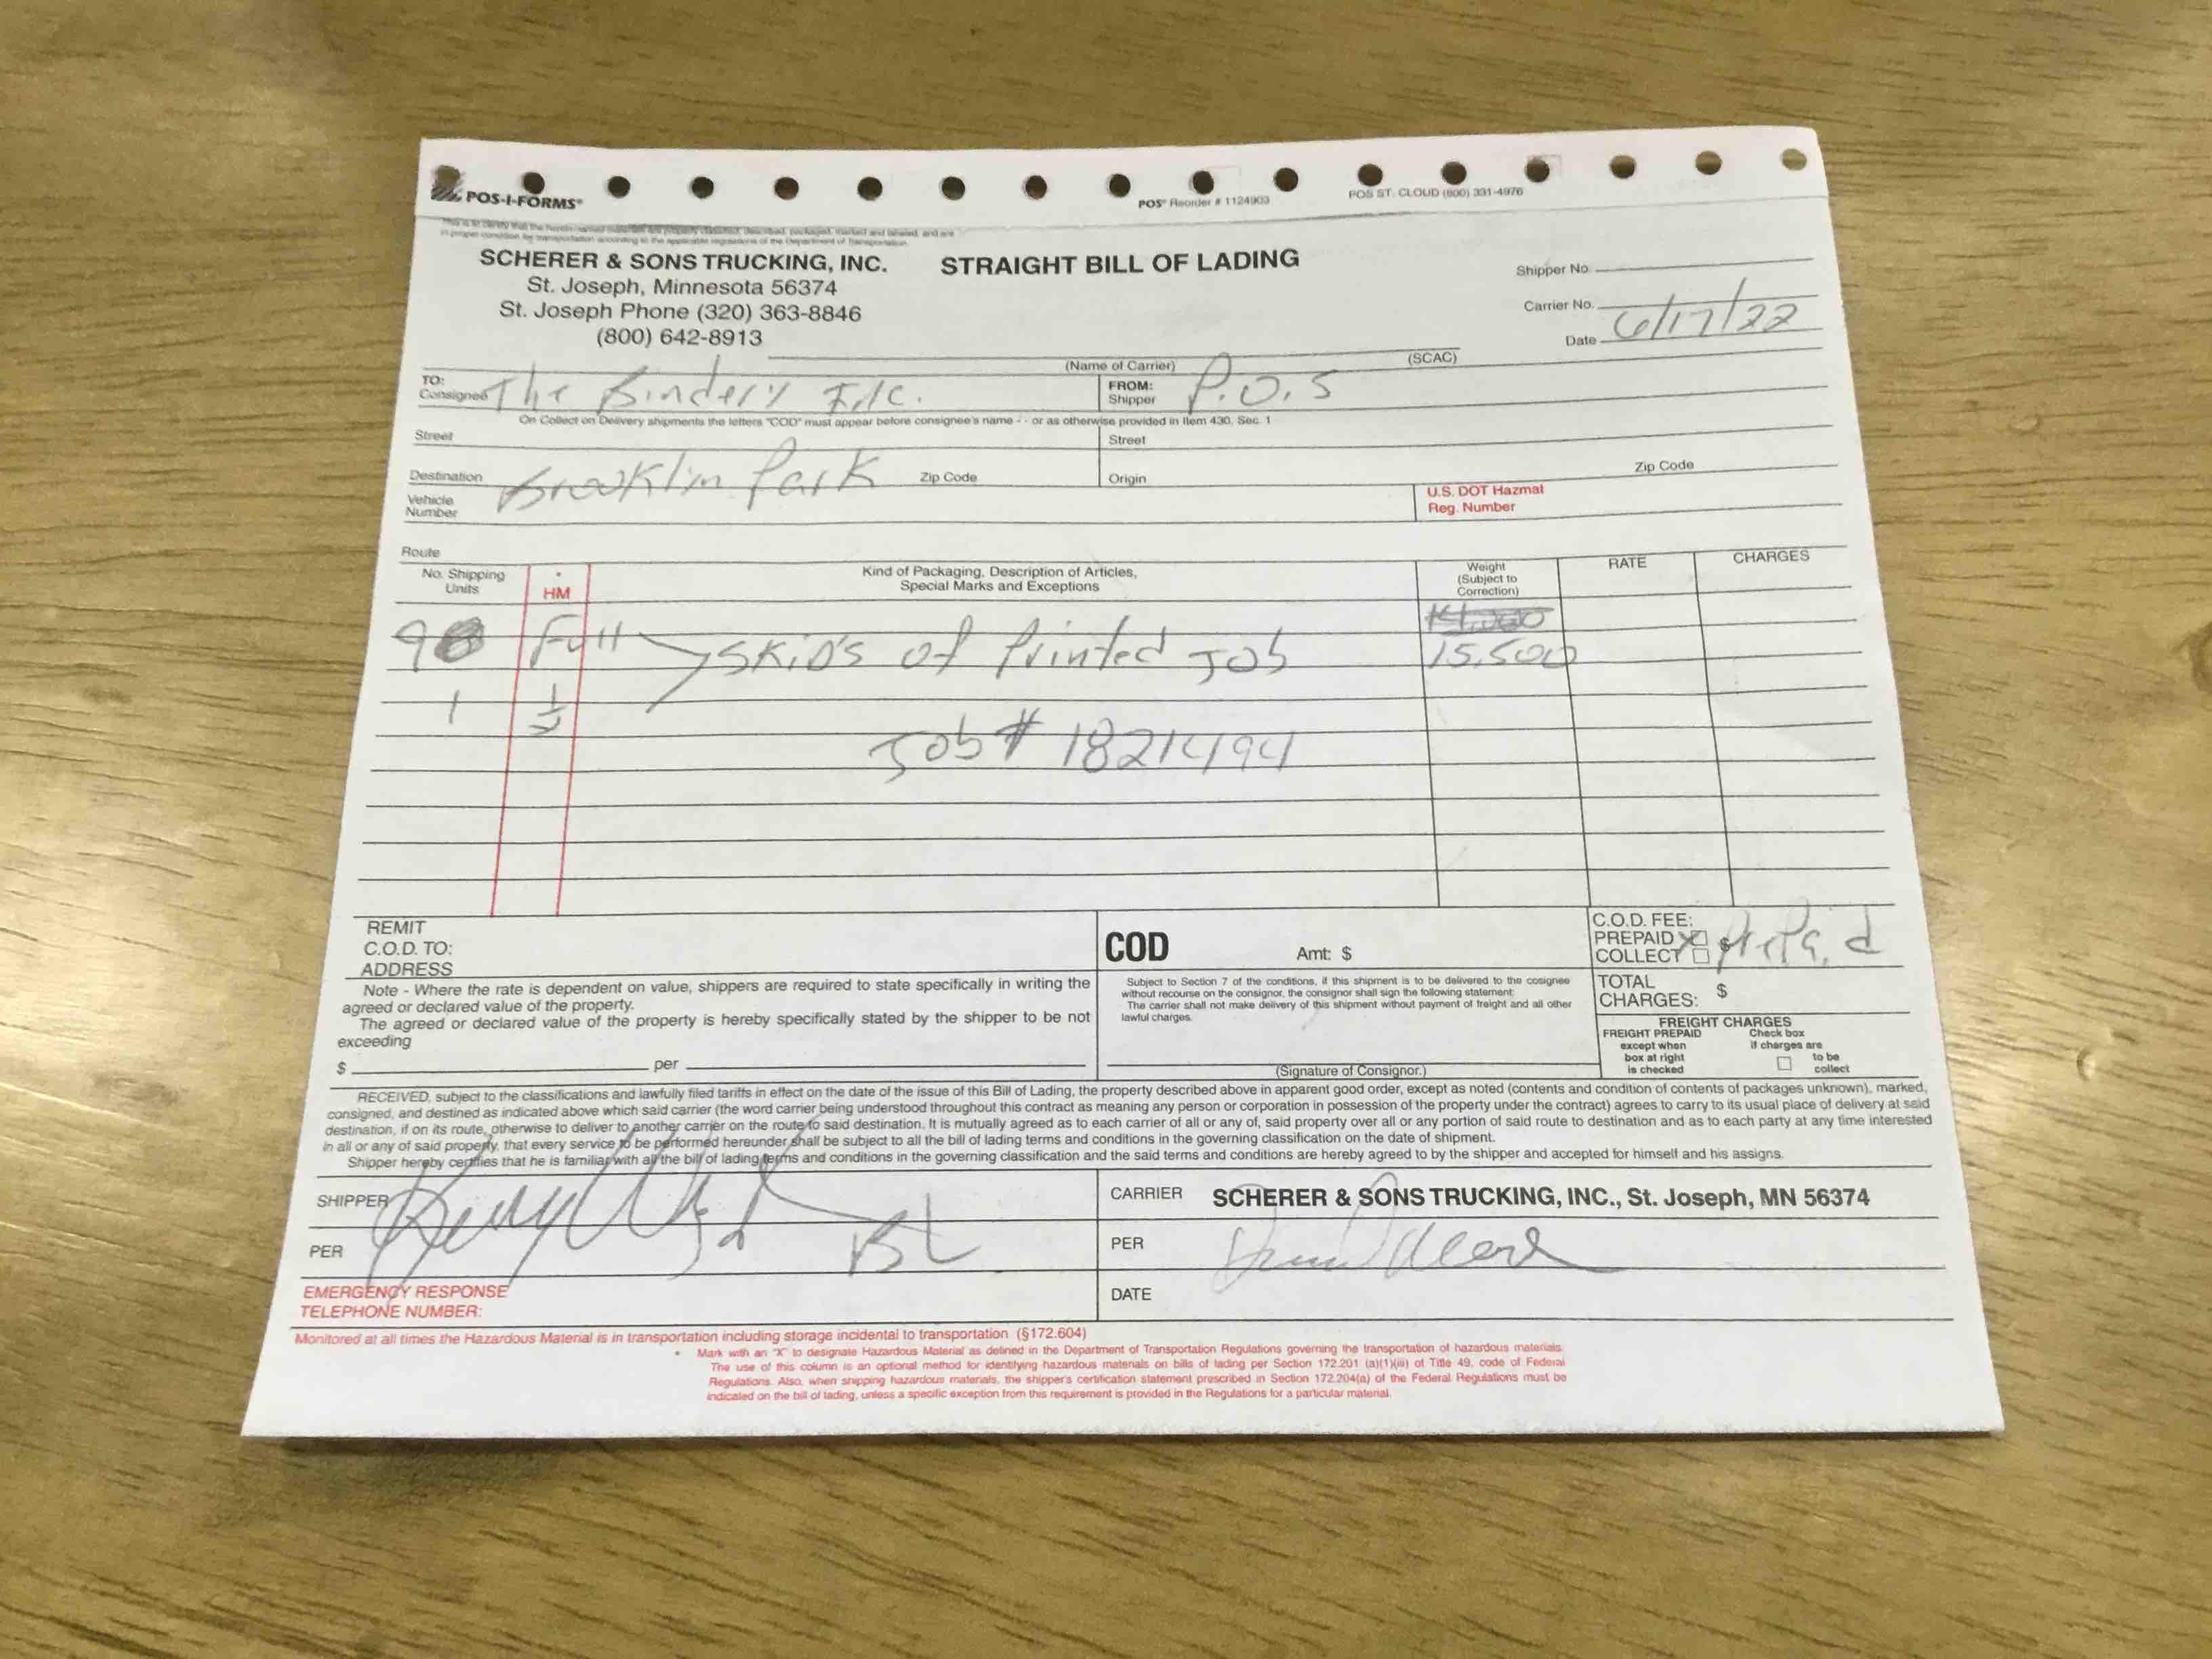 POS-I-FORMS®
POS® Reorder # 1124903
POS ST. CLOUD (800) 331-4976
This is to certify that the herein named materials are properly classified, described, packaged, marked and labeled, and are
in proper condition for transportation according to the applicable regulations of the Department of Transportation.
SCHERER & SONS TRUCKING, INC.
St. Joseph, Minnesota 56374
St. Joseph Phone (320) 363-8846
(800) 642-8913
STRAIGHT BILL OF LADING
Shipper No.
Carrier No.
Date 6/17/22
(Name of Carrier)
(SCAC)
TO:
Consignee The Bindery Inc.
FROM:
Shipper P.O.S
On Collect on Delivery shipments the letters "COD" must appear before consignee's name - - or as otherwise provided in Item 430, Sec. 1
Street
Street
Destination Brooklin Park Zip Code
Origin
Zip Code
Vehicle
Number
U.S. DOT Hazmat
Reg. Number
Route
No. Shipping
Units
*
HM
Kind of Packaging, Description of Articles,
Special Marks and Exceptions
Weight
(Subject to
Correction)
RATE
CHARGES
14,000
9 Full SKiD's of Printed Job 15,500
1 1/2
Job # 1821494
REMIT
C.O.D. TO:
ADDRESS
COD
Amt: $
C.O.D. FEE:
PREPAID X $ PrePaid
COLLECT
Note - Where the rate is dependent on value, shippers are required to state specifically in writing the
agreed or declared value of the property.
The agreed or declared value of the property is hereby specifically stated by the shipper to be not
exceeding
$ per
Subject to Section 7 of the conditions, if this shipment is to be delivered to the cosignee
without recourse on the consignor, the consignor shall sign the following statement:
The carrier shall not make delivery of this shipment without payment of freight and all other
lawful charges.
(Signature of Consignor.)
TOTAL
CHARGES: $
FREIGHT CHARGES
FREIGHT PREPAID
except when
box at right
is checked
Check box
if charges are
to be
collect
RECEIVED, subject to the classifications and lawfully filed tariffs in effect on the date of the issue of this Bill of Lading, the property described above in apparent good order, except as noted (contents and condition of contents of packages unknown), marked,
consigned, and destined as indicated above which said carrier (the word carrier being understood throughout this contract as meaning any person or corporation in possession of the property under the contract) agrees to carry to its usual place of delivery at said
destination, if on its route, otherwise to deliver to another carrier on the route to said destination. It is mutually agreed as to each carrier of all or any of, said property over all or any portion of said route to destination and as to each party at any time interested
in all or any of said property, that every service to be performed hereunder shall be subject to all the bill of lading terms and conditions in the governing classification on the date of shipment.
Shipper hereby certifies that he is familiar with all the bill of lading terms and conditions in the governing classification and the said terms and conditions are hereby agreed to by the shipper and accepted for himself and his assigns.
SHIPPER
PER BL
CARRIER SCHERER & SONS TRUCKING, INC., St. Joseph, MN 56374
PER
DATE
EMERGENCY RESPONSE
TELEPHONE NUMBER:
Monitored at all times the Hazardous Material is in transportation including storage incidental to transportation (§172.604)
* Mark with an "X" to designate Hazardous Material as defined in the Department of Transportation Regulations governing the transportation of hazardous materials.
The use of this column is an optional method for identifying hazardous materials on bills of lading per Section 172.201 (a)(1)(iii) of Title 49, code of Federal
Regulations. Also, when shipping hazardous materials, the shipper's certification statement prescribed in Section 172.204(a) of the Federal Regulations must be
indicated on the bill of lading, unless a specific exception from this requirement is provided in the Regulations for a particular material.